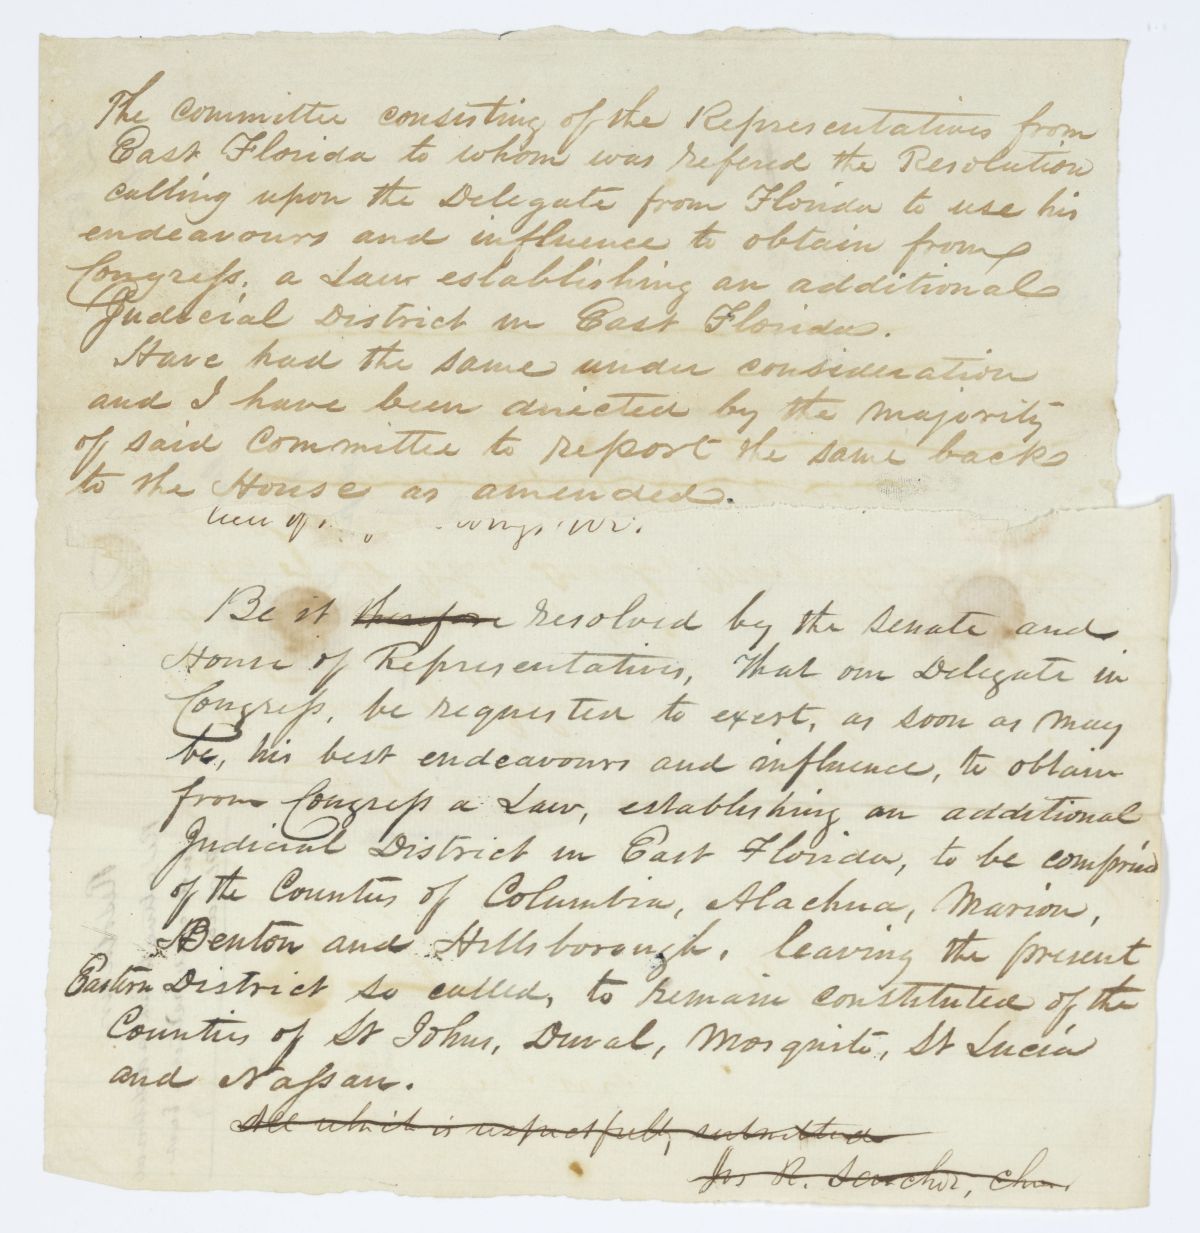 The Committee consisting of the Representatives from
East Florida to whom was refered the Resolution
calling upon the Delegate from Florida to use his
endeavours and influence to obtain from
Congress, a Law establishing an additional
Judicial District in East Florida.
Have had the same under consideration
and I have been directed by the majority
of said Committee to report the same back
to the House as amended.
Be it therefore resolved by the Senate and
House of Representatives, That our Delegate in
Congress, be requested to exert, as soon as may
be, his best endeavours and influence, to obtain
from Congress a Law, establishing an additional
Judicial District in East Florida, to be comprised
of the Counties of Columbia, Alachua, Marion,
Benton and Hillsborough, leaving the present
Eastern District so called, to remain constituted of the
Counties of St Johns, Duval, Mosquito, St Lucia
and Nassau.
All which is respectfully submitted
R. Sanchez, Chn.